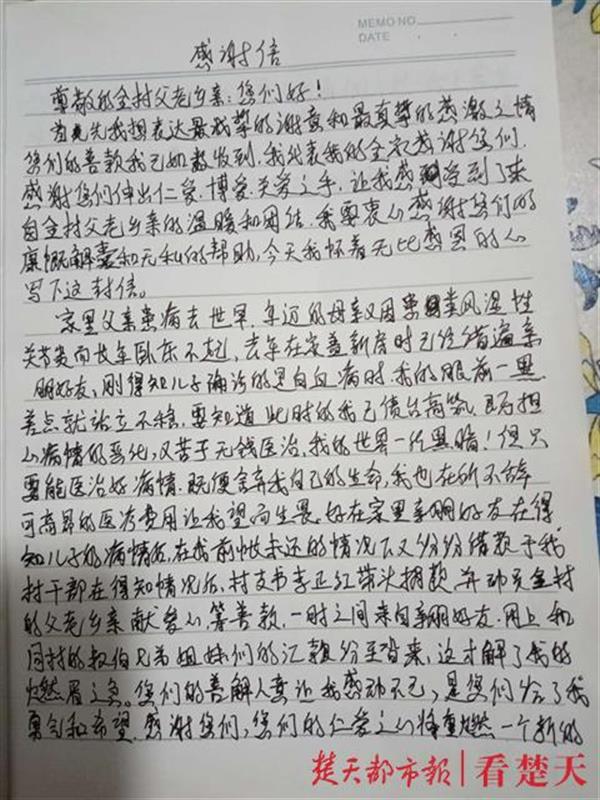 MEMO NO.
DATE
感谢信
尊敬的全村父老乡亲：您们好！
首先我想表达最诚挚的谢意和最真挚的感激之情
您们的善款我已如数收到，我代表我的全家感谢您们，
感谢您们伸出仁爱、博爱、关爱之手，让我感受到了来
自全村父老乡亲的温暖和团结，我要衷心感谢您们的
康慨解囊和无私的帮助，今天我怀着无比感恩的心
写下这封信。
家里父亲患病去世早，年迈的母亲又因患类风湿性
关节炎而长年卧床不起，去年在家盖新房时已经借遍亲
朋好友，刚得知儿子确诊的是白血病时，我的眼前一黑
差点就站立不稳，要知道此时的我已债台高筑，既担
心病情的恶化，又苦于无钱医治，我的世界一片黑暗！但只
要能医治好病情，既便舍弃我自己的生命，我也在所不辞
可高昂的医疗费用让我望而生畏。好在家里亲朋好友在得
知儿子的病情后，在我前帐未还的情况下又纷纷借款于我
村干部在得知情况后，村支书李正红带头捐款，并动员全村
的父老乡亲献爱心，筹善款，一时之间来自亲朋好友、网上和
同村的叔伯兄弟姐妹们的汇款纷至沓来，这才解了我的
燃眉之急。您们的善解人意让我感动不已，是您们给了我
勇气和希望，感谢您们，您们的仁爱之心将重燃一个新的
楚天都市报|看楚天